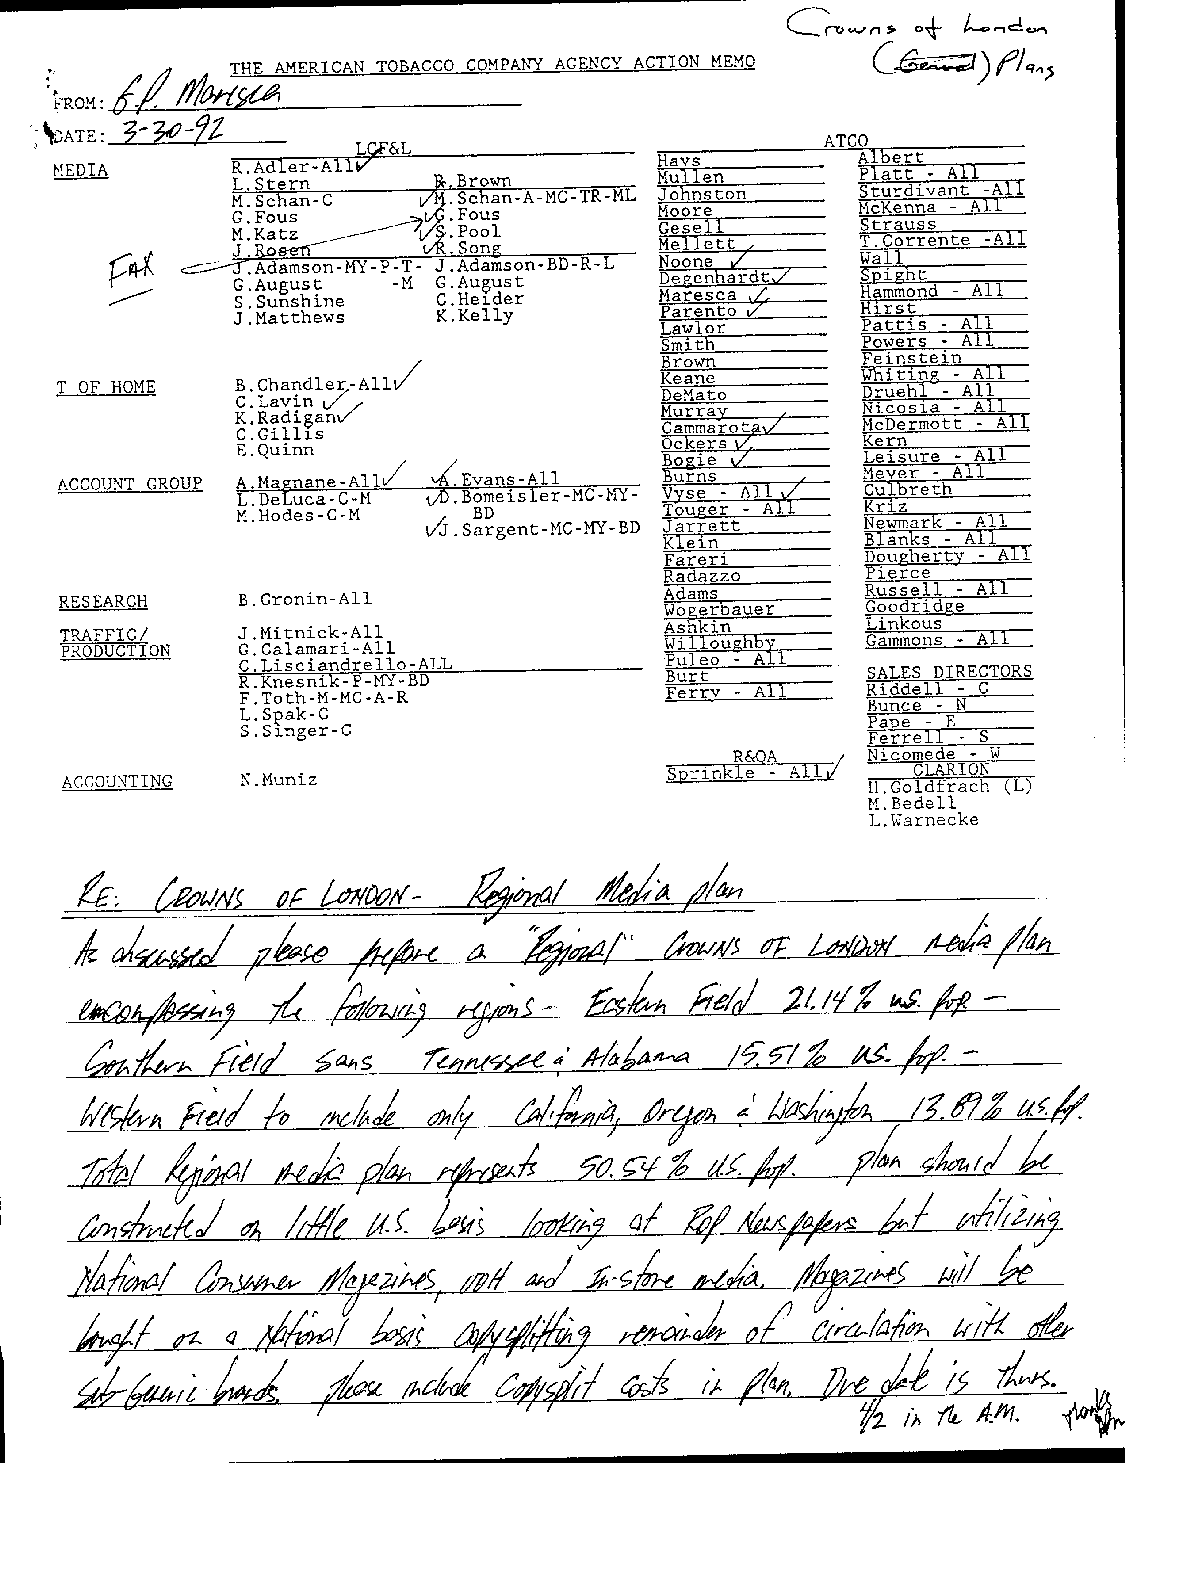 Crowns of London
(General) Plans
THE AMERICAN TOBACCO COMPANY AGENCY ACTION MEMO
FROM: E.P. Maresca
DATE: 3-30-92
LCF&L
MEDIA
R.Adler-All✓
L.Stern
M.Schan-C
G.Fous
M.Katz
J.Rosen
FAX
J.Adamson-MY-P-T-
G.August -M
S.Sunshine
J.Matthews
R.Brown
✓M.Schan-A-MC-TR-ML
✓G.Fous
✓S.Pool
✓R.Song
J.Adamson-BD-R-L
G.August
C.Heider
K.Kelly
T OF HOME
B.Chandler-All✓
C.Lavin ✓
K.Radigan✓
C.Gillis
E.Quinn
ACCOUNT GROUP
A.Magnane-All✓
L.DeLuca-C-M
M.Hodes-C-M
✓A.Evans-All
✓D.Bomeisler-MC-MY-
BD
✓J.Sargent-MC-MY-BD
RESEARCH
B.Gronin-All
TRAFFIC/
PRODUCTION
J.Mitnick-All
G.Calamari-All
C.Lisciandrello-ALL
R.Knesnik-P-MY-BD
F.Toth-M-MC-A-R
L.Spak-C
S.Singer-C
ACCOUNTING
N.Muniz
ATCO
Hays
Mullen
Johnston
Moore
Gesell
Mellett
Noone ✓
Degenhardt✓
Maresca ✓
Parento ✓
Lawlor
Smith
Brown
Keane
DeMato
Murray
Cammarota✓
Ockers ✓
Bogie ✓
Burns
Vyse - All ✓
Touger - All
Jarrett
Klein
Fareri
Radazzo
Adams
Wogerbauer
Ashkin
Willoughby
Puleo - All
Burt
Ferry - All
R&QA
Sprinkle - All✓
Albert
Platt - All
Sturdivant -All
McKenna - All
Strauss
T.Corrente -All
Wall
Spight
Hammond - All
Hirst
Pattis - All
Powers - All
Feinstein
Whiting - All
Druehl - All
Nicosia - All
McDermott - All
Kern
Leisure - All
Meyer - All
Culbreth
Kriz
Newmark - All
Blanks - All
Dougherty - All
Pierce
Russell - All
Goodridge
Linkous
Gammons - All
SALES DIRECTORS
Riddell - C
Bunce - N
Pape - E
Ferrell - S
Nicomede - W
CLARION
H.Goldfrach (L)
M.Bedell
L.Warnecke
RE: CROWNS OF LONDON - Regional Media plan
As discussed please prepare a "Regional" CROWNS OF LONDON media plan
encompassing the following regions - Eastern Field 21.14% u.s. pop -
Southern Field sans Tennessee & Alabama 15.51% u.s. pop. -
Western Field to include only California, Oregon & Washington 13.89% u.s. pop.
Total Regional media plan represents 50.54% u.s. pop. plan should be
constructed on little u.s. basis looking at ROP Newspapers but utilizing
National Consumer Magazines, OOH and In-store media. Magazines will be
bought on a National basis copysplitting remainder of circulation with other
Sub-Generic brands. please include copysplit costs in plan. Due date is thurs.
4/2 in the A.M. thanks